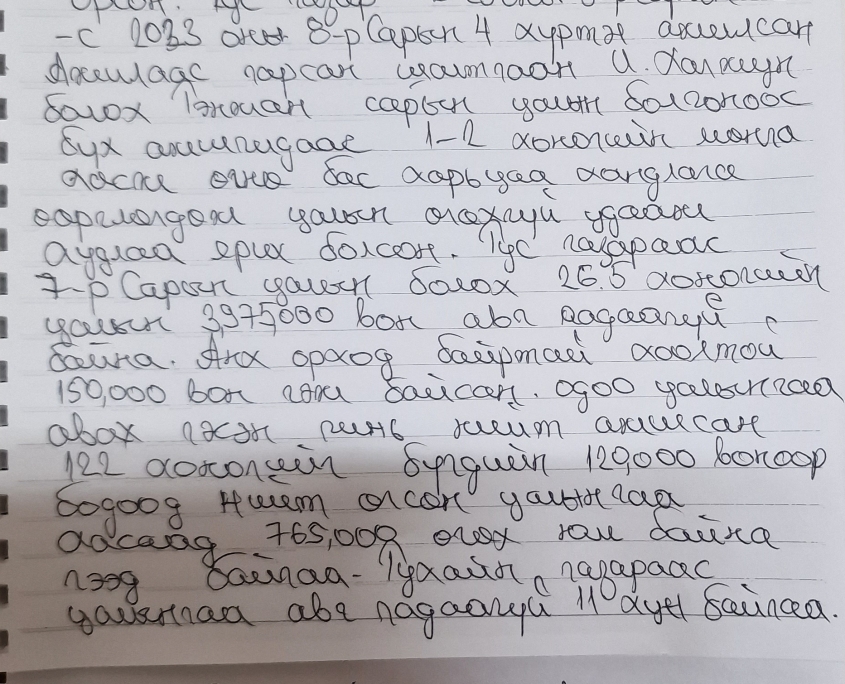 -с 2023 оны 8-р Сарын 4 хүртэл ажилсан
Ажилаас гарсан шалтгаан И. Халжун
болох Тэнман сарын цалин болгоноос
бүх ажилчидаас 1-2 хоногийн мөнгө
хасж өгнө бас харьцаа хандлага
ооршлолдож цалин өгөхгүй удааж
худлаа ярих болсон. Тус газараас
7-р Сарын цалин болох 26.5 хоногийн
цалин 3,975,000 вон авч чадаагүй
байна. Анх ороход байртай хоолтой
150,000 вон гэж байсан. одоо цалингаа
авах гэсэн чинь нийт ажилсан
122 хоногийн бүгдийн 120,000 воноор
бодоод Нийт өгсөн цалингаа
хасаад 765,000 өгөх юм байна
гээд байгаа- Тухайн газараас
цалингаа авч чадаагүй 11 хүн байгаа.